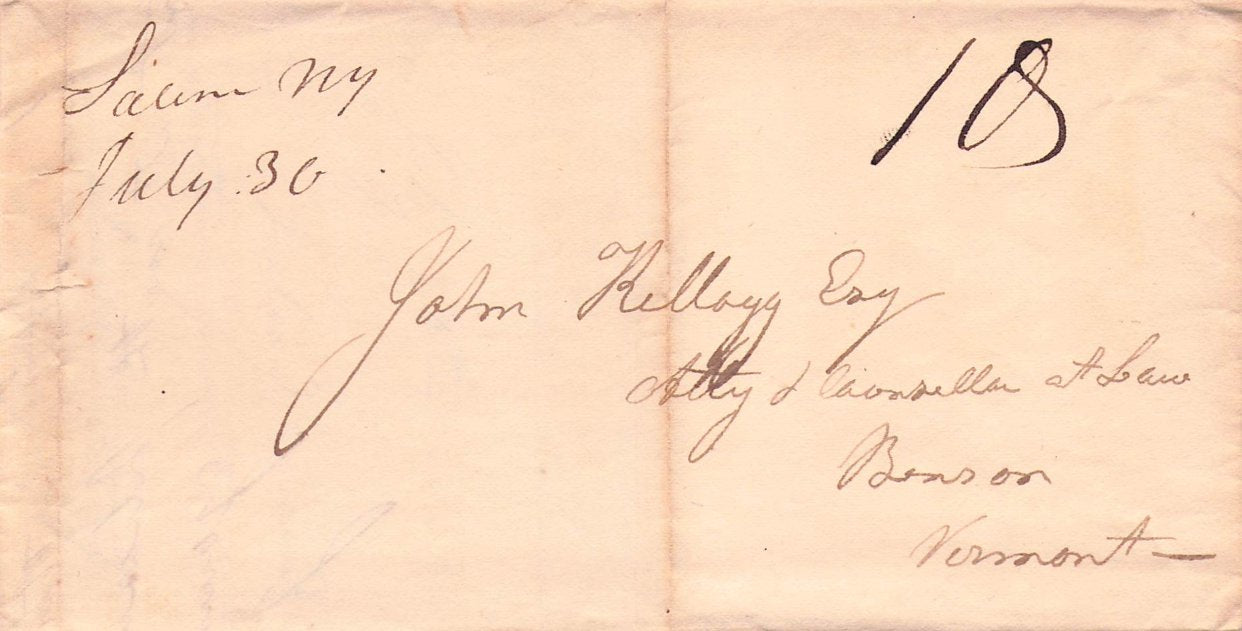 Salem NY
July 30
10
John Kellogg Esq
Atty & Counsellor at Law
Benson
Vermont —